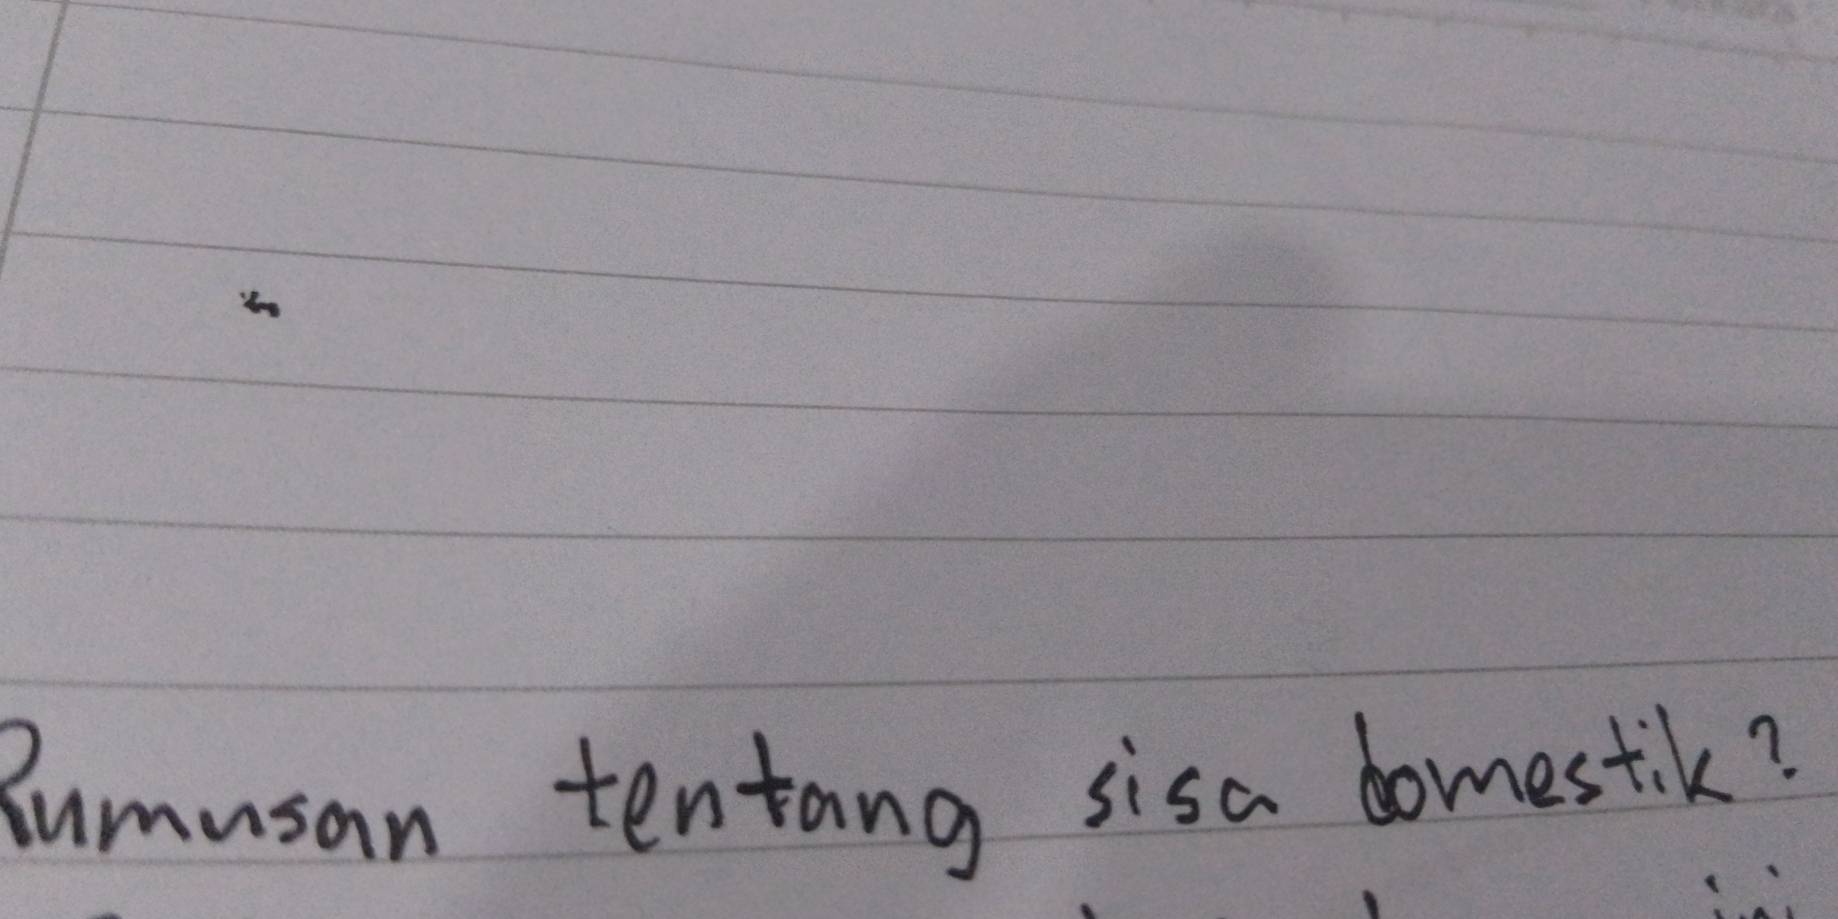 Rumusan tentang sisa domestik?